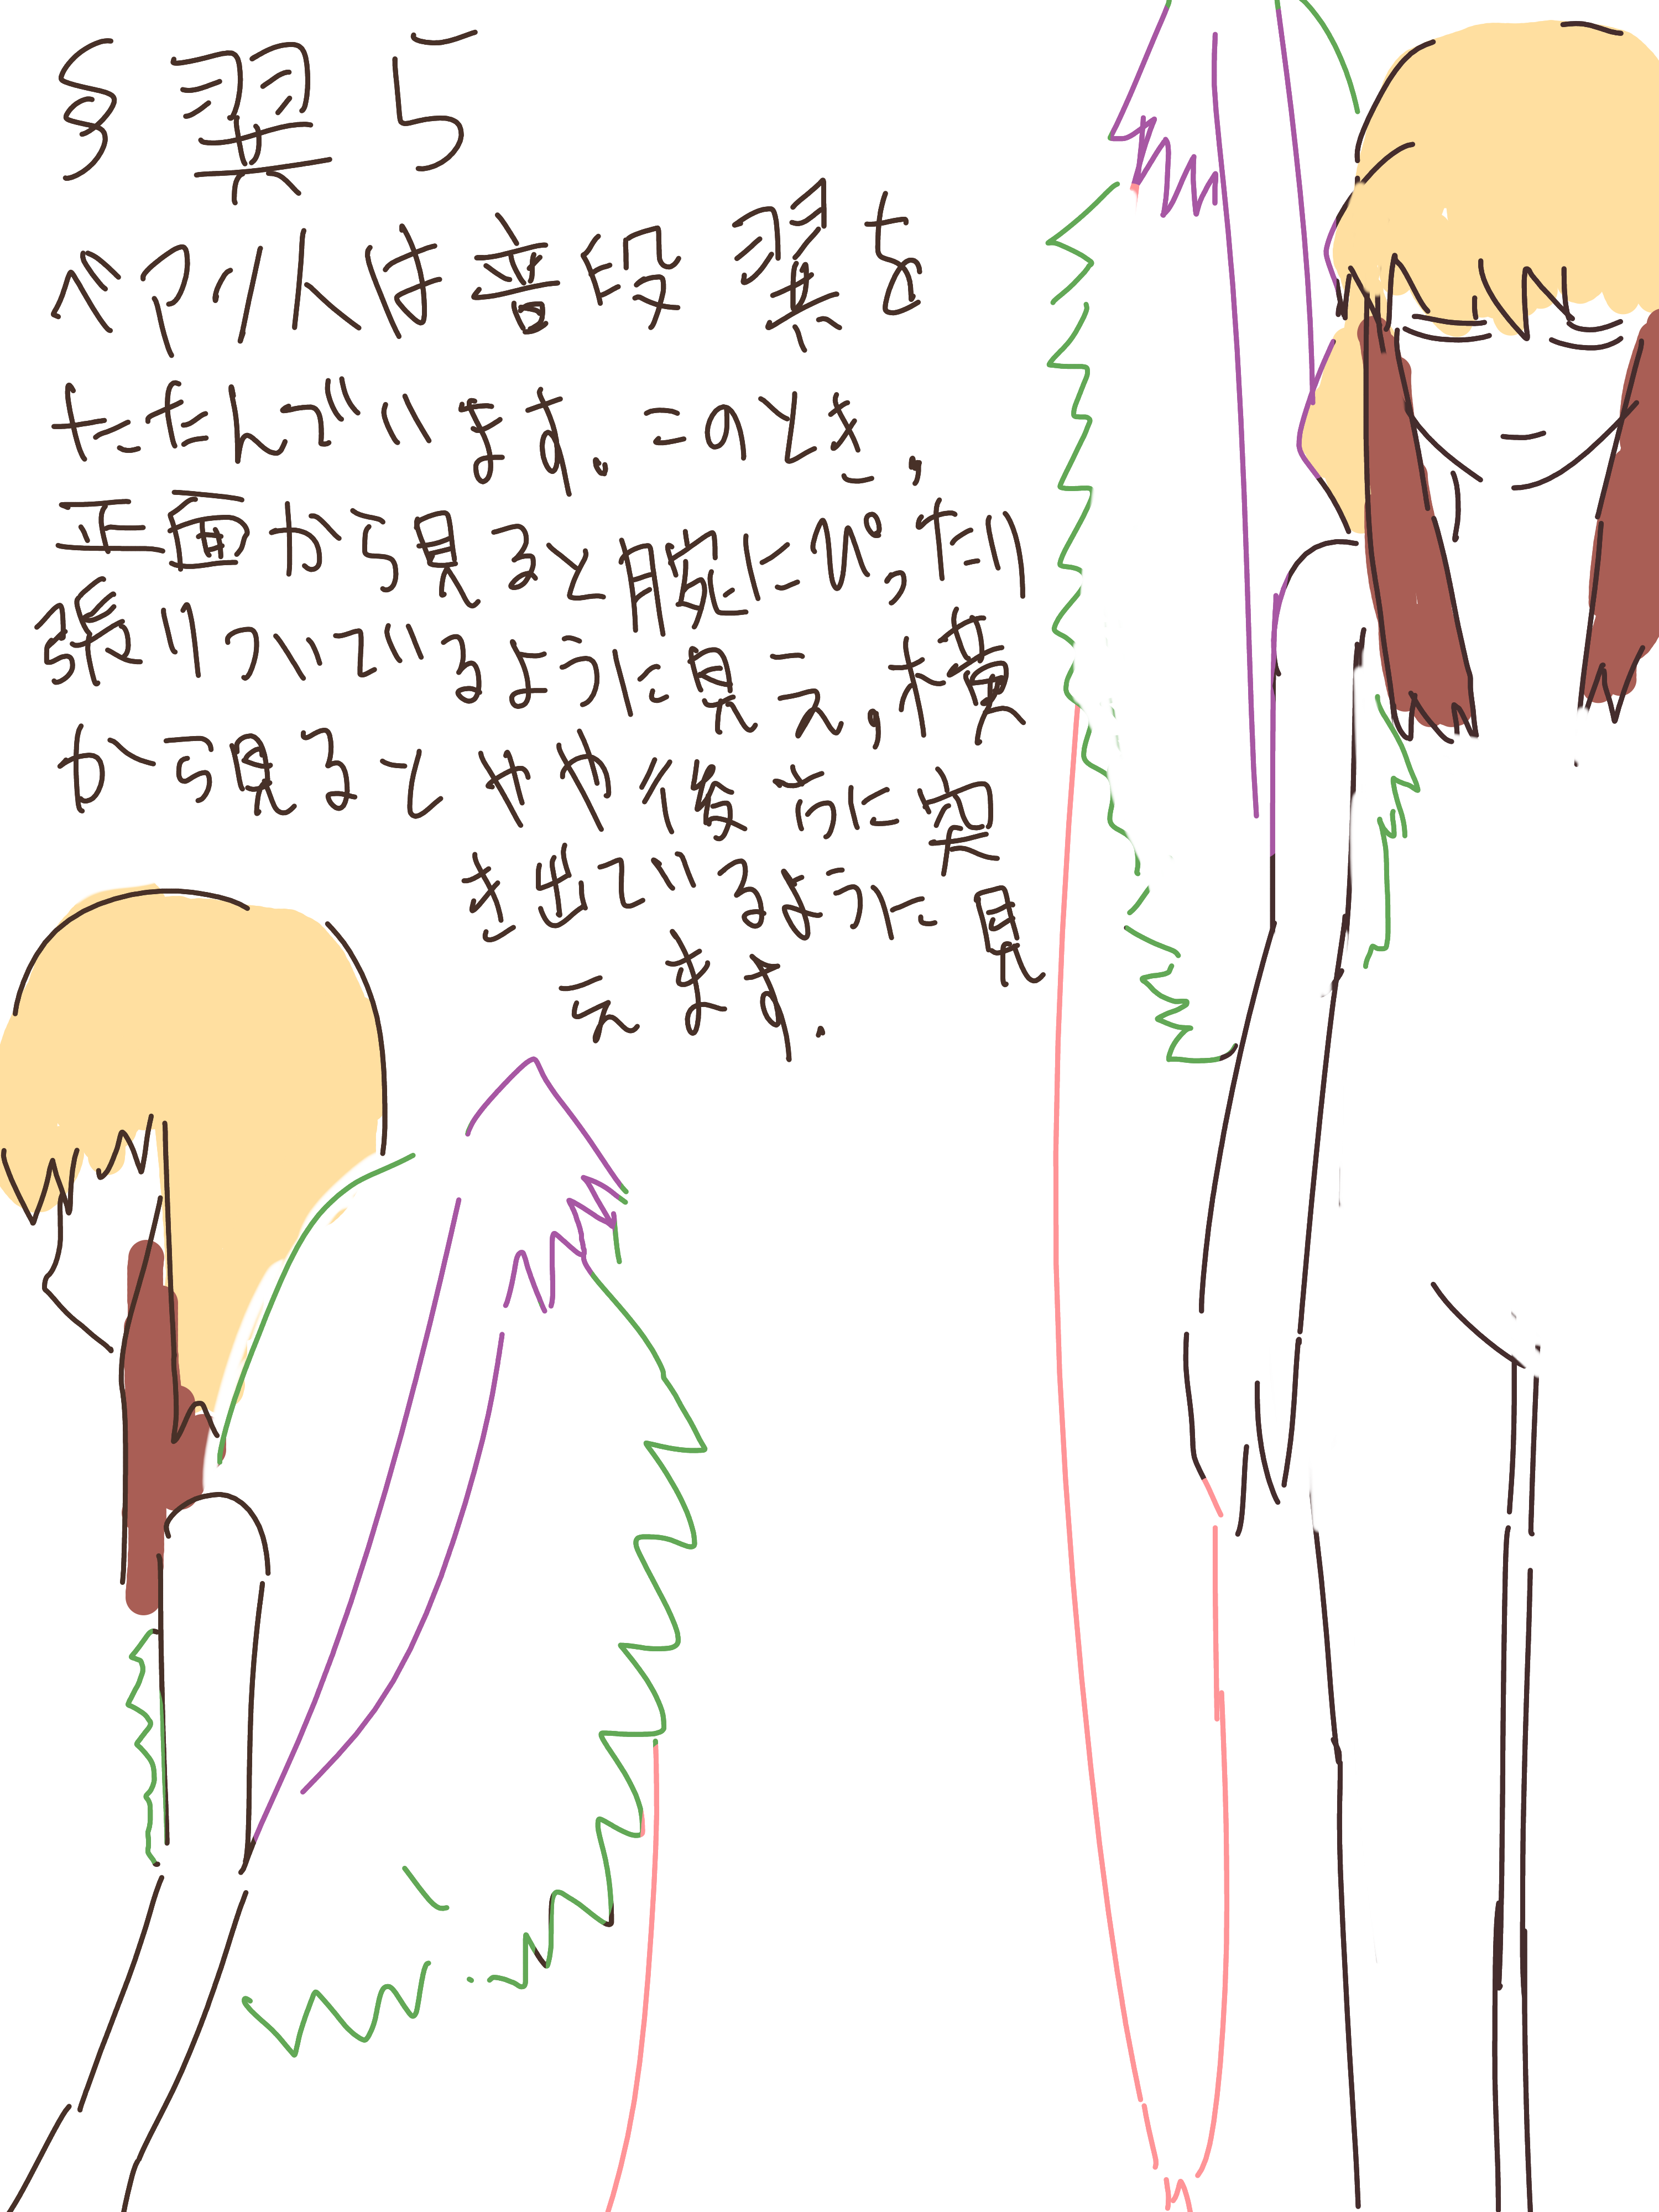 §翼5
ペア人は普段翼を
たたんでいます。このとき,
正面から見ると腕にぴったり
張りついているように見え,横
から見るとやや後方に突
き出ているように見
えます.